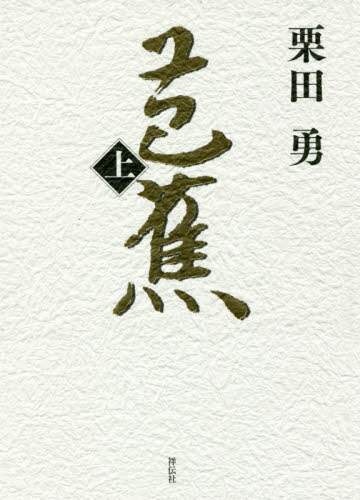 栗田 勇
芭蕉
上
祥伝社